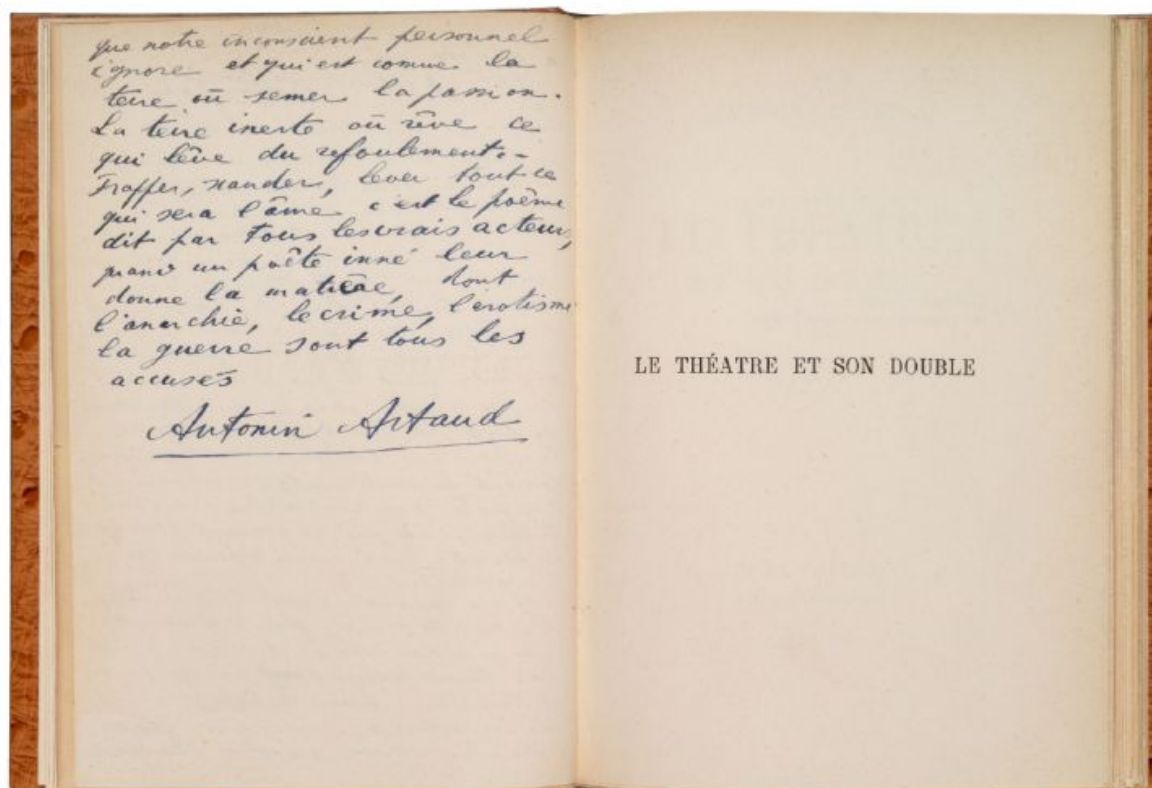 que notre inconscient personnel
ignore et qui est comme la
terre où semer la passion.
La terre inerte où rêve ce
qui lève du refoulement.-
Frapper, scander, lever tout ce
qui sera l'âme c'est le poème
dit par Tous les vrais acteurs,
quand un poète inné leur
donne la matière, dont
l'anarchie, le crime, l'érotisme
la guerre sont tous les
accusés
Antonin Artaud
LE THÉATRE ET SON DOUBLE